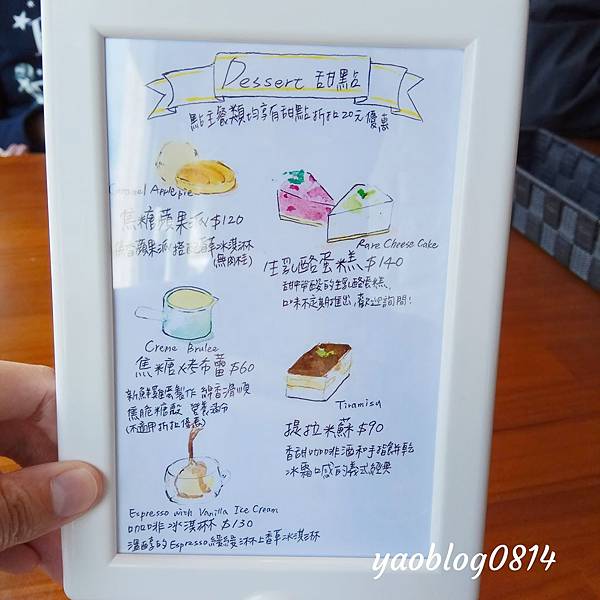 Dessert 甜點
點主餐類均享有甜點折扣20元優惠
Caramel Apple pie
焦糖蘋果派 $120
蘋果派 搭配香草冰淇淋
(無肉桂)
Rare Cheese Cake
生乳酪蛋糕 $140
甜中帶酸的生乳酪蛋糕,
口味不定期推出,歡迎詢問!
Creme Brulee
焦糖烤布蕾 $60
新鮮雞蛋製作 綿香滑順
焦脆糖殼
(不適用折扣優惠)
Tiramisu
提拉米蘇 $90
香甜咖啡酒和手指餅乾
冰霜口感的義式經典
Espresso with Vanilla Ice Cream
咖啡冰淇淋 $130
溫醇的Espresso緩緩淋上香草冰淇淋
yaoblog0814